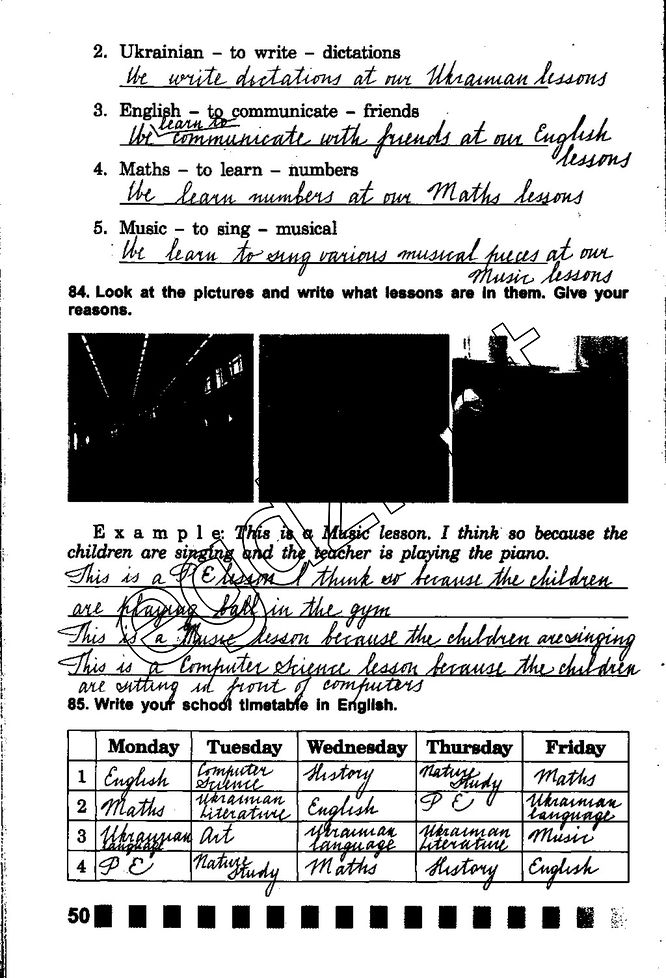 2. Ukrainian – to write – dictations
We write dictations at our Ukrainian lessons
3. English – to communicate – friends
learn to
We communicate with friends at our English
lessons
4. Maths – to learn – numbers
We learn numbers at our Maths lessons
5. Music – to sing – musical
We learn to sing various musical pieces at our
Music lessons
84. Look at the pictures and write what lessons are in them. Give your
reasons.
Example: This is a Music lesson. I think so because the
children are singing and the teacher is playing the piano.
This is a PE lesson I think so because the children
are playing ball in the gym
This is a Music lesson because the children are singing
This is a Computer Science lesson because the children
are sitting in front of computers
85. Write your school timetable in English.
Monday Tuesday Wednesday Thursday Friday
1 English Computer Science History Nature Study Maths
2 Maths Ukrainian Literature English PE Ukrainian language
3 Ukrainian language Art Ukrainian language Ukrainian Literature Music
4 PE Nature Study Maths History English
50